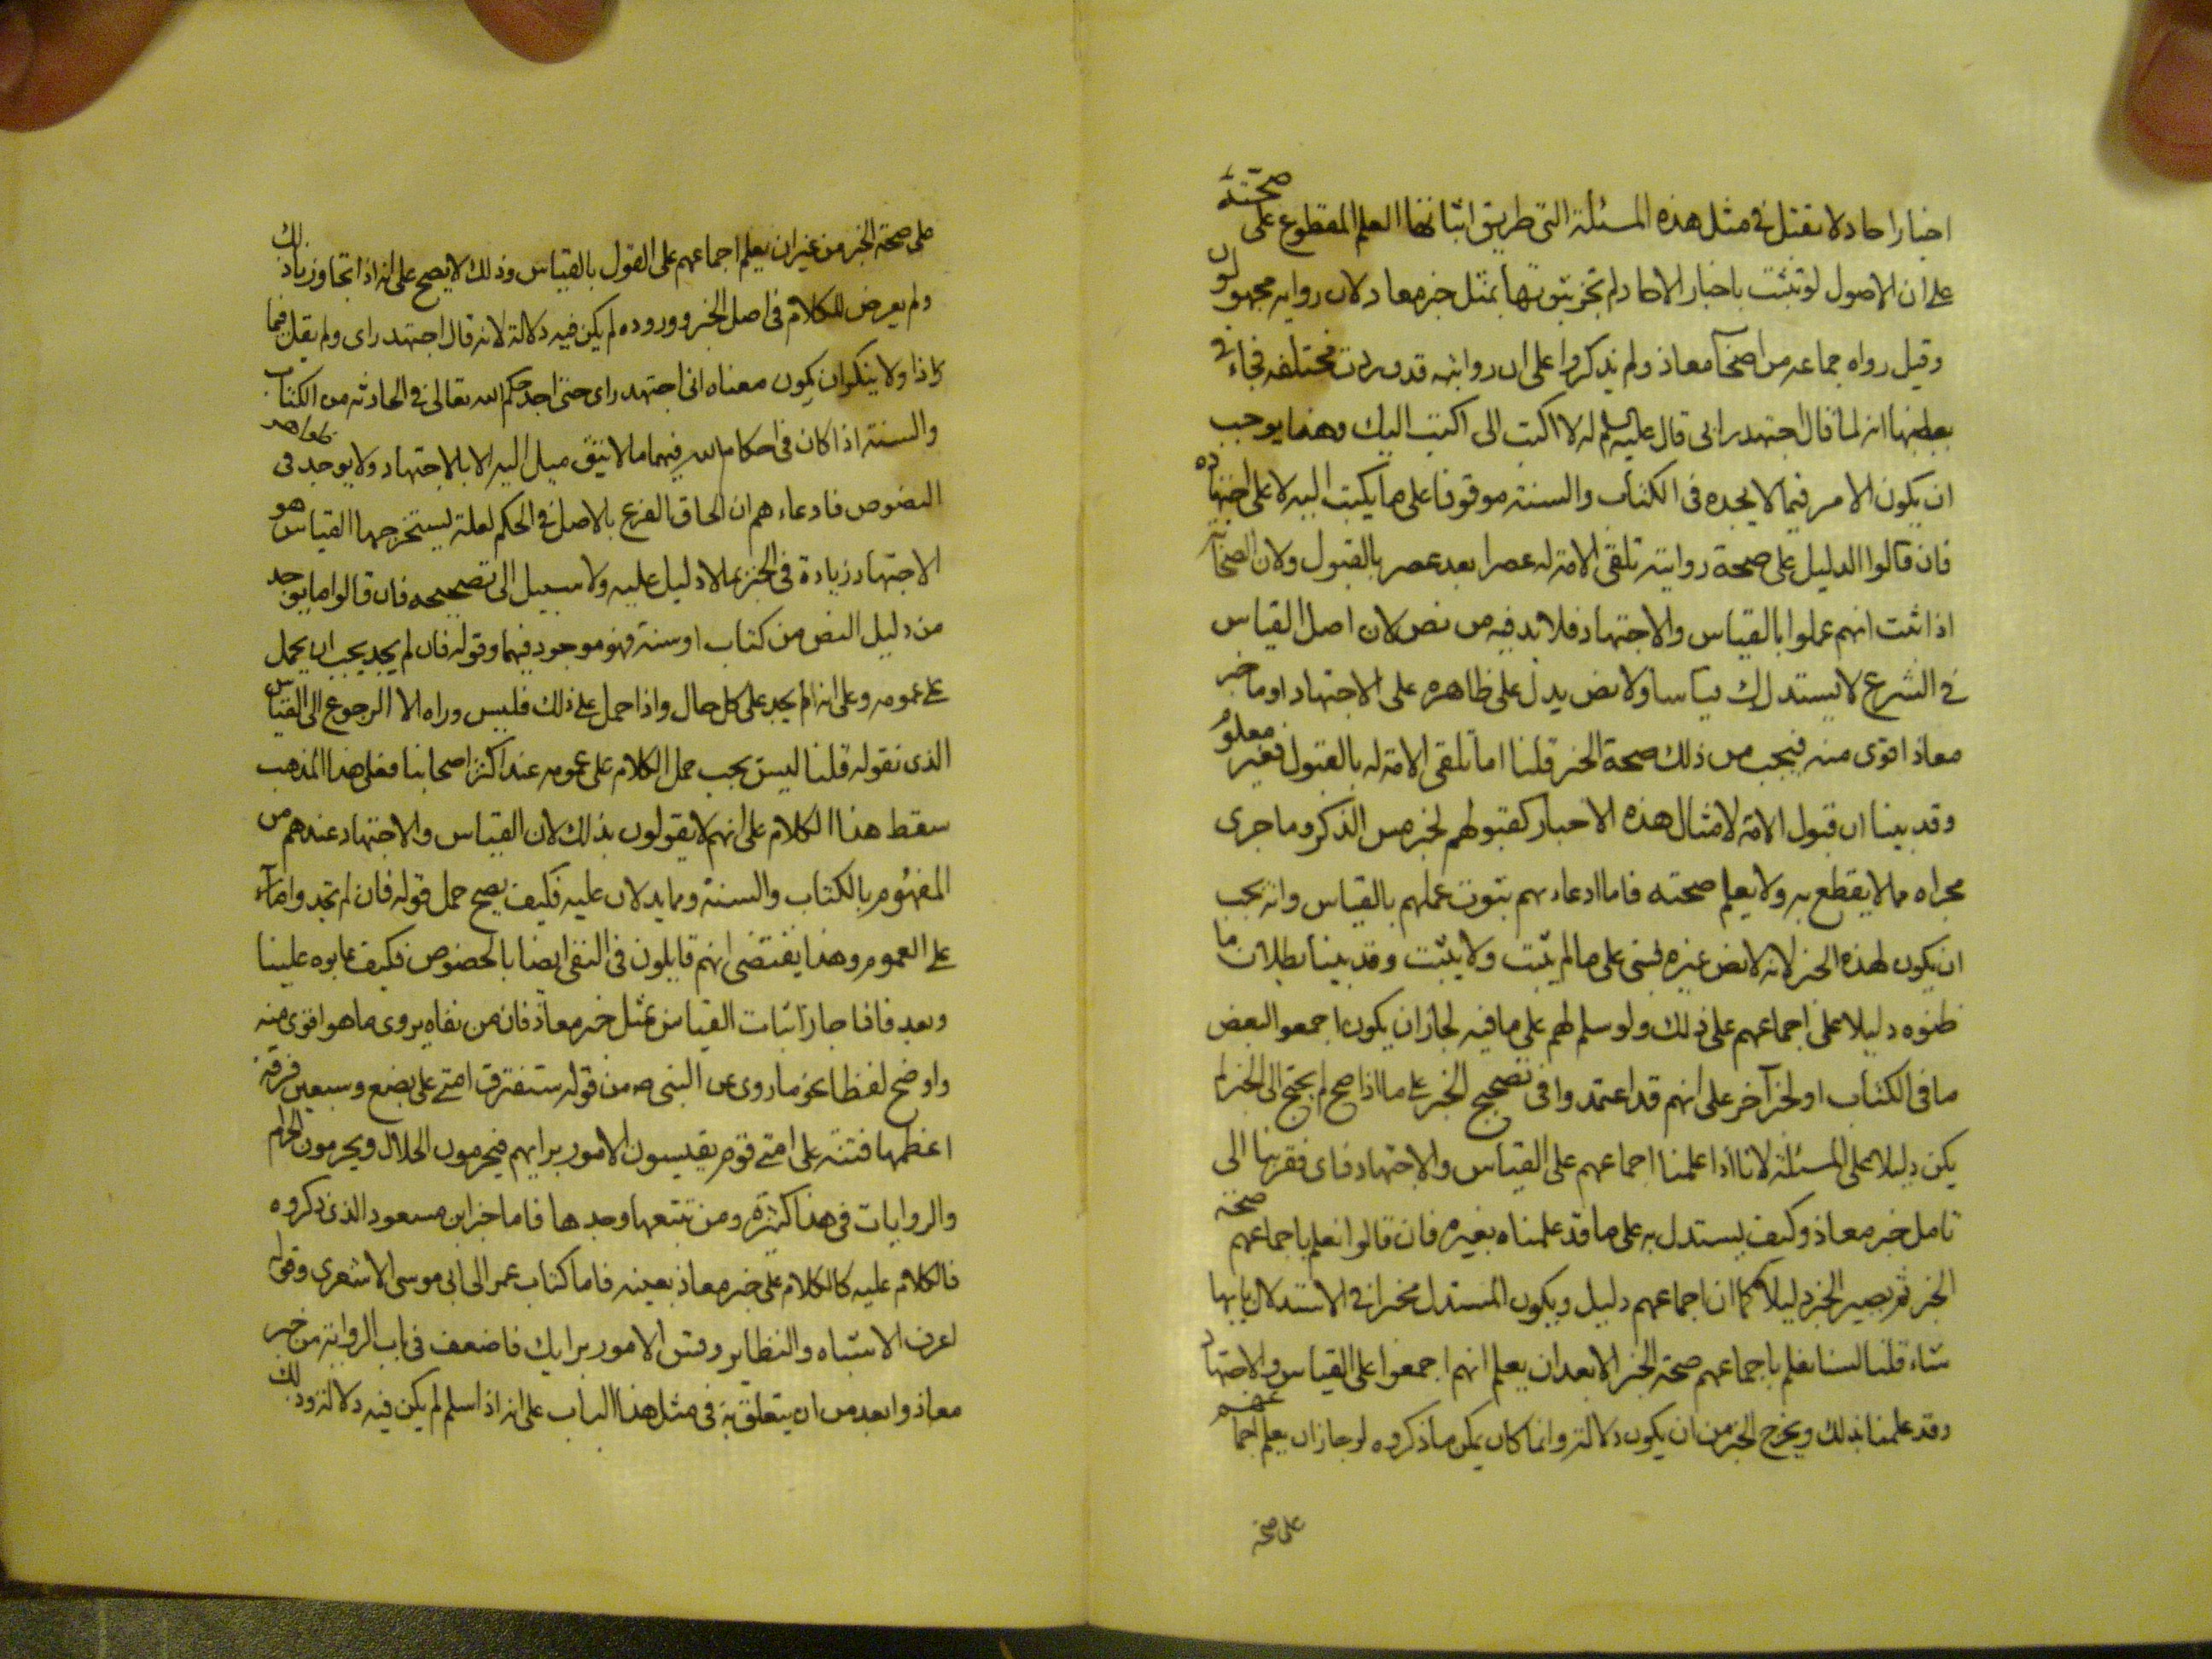 اخبار احاد لا تقبل في مثل هذه المسئلة التي طريق اثباتها العلم المقطوع على صحته
على ان الاصول لو ثبتت باخبار الاحاد لم يجز ثبوتها بمثل خبر معاد لان رواته مجهولون
وقيل رواه جماعه من اصحاب معاذ ولم يذكروا على ان روايته قد وردت مختلفه فجاء في
بعضها انه لما قال اجتهد رايى قال عليه السلم له لا اكتب الى اكتب اليك وهذا يوجب
ان يكون الامر فيما لا يجده فى الكتاب والسنة موقوفا على ما يكتب اليه لا على اجتهاده
فان قالوا الدليل على صحة روايته تلقى الامة له عصرا بعد عصر بالقبول ولان الصحابة
اذا ثبت انهم عملوا بالقياس والاجتهاد فلا بد فيه من نص لان اصل القياس
في الشرع لا يستدرك قياسا ولا نص يدل على ظاهره على الاجتهاد او ما خبر
معاذ اقوى منه فيجب من ذلك صحة الخبر قلنا اما تلقى الامة له بالقبول فغير معلوم
وقد بينا ان قبول الامة لامثال هذه الاخبار كقبولهم لخبر مس الذكر وما جرى
مجراه مما لا يقطع به ولا يعلم صحته فاما ادعاءهم ثبوت عملهم بالقياس وانه يجب
ان يكون لهذه الخبر لانه لا نص غيره فبنى على ما لم يثبت ولا يثبت وقد بينا بطلان ما
ظنوه دليلا على اجماعهم على ذلك ولو سلم لهم على ما فيه لجاز ان يكون اجمعوا لبعض
ما فى الكتاب او لخبر آخر على انهم قد اعتمدوا فى تصحيح الخبر على ما اذا صح لم يحتج الى الخبر لم
يكن دليلا على المسئلة لانا اذا علمنا اجماعهم على القياس والاجتهاد فاى فقر بنا الى
تامل خبر معاذ وكيف يستدل به على ما قد علمناه بغيره فان قالوا نعلم باجماعهم صحة
الخبر ثم يصير الخبر دليلا كما ان اجماعهم دليل ويكون المستدل مخيرا فى الاستدلال بايها
شاء قلنا لسنا نعلم باجماعهم صحة الخبر الا بعد ان يعلم انهم اجمعوا على القياس والاجتهاد
وقد علمنا بذلك ويخرج الخبر من ان يكون دلالة وانما كان يمكن ما ذكروه لو جاز ان يعلم اجماعهم
على صحة
على صحة الخبر من غير ان يعلم اجماعهم على القول بالقياس وذلك لا يصح على انه اذا تجاوزنا ذلك
ولم يعرض للكلام فى اصل الخبر وروده لم يكن فيه دلالة لانه قال اجتهد راى ولم يقل فيما
ذا ولا ينكر ان يكون معناه انى اجتهد راى حتى اجد حكم الله تعالى فى الحادثه من الكتاب
والسنة اذا كان فى احكام الله فيهما ما لا يتوصل اليه الا بالاجتهاد ولا يوجد فى ظواهر
النصوص فادعاءهم ان الحاق الفرع بالاصل فى الحكم لعلة يستخرجها القياس هو
الاجتهاد زيادة فى الخبر بما لا دليل عليه ولا سبيل الى تصحيحه فان قالوا ما يوجد
من دليل النص من كتاب او سنة فهو موجود فيهما وقوله فان لم يجد يجب ان يحمل
على عمومه وعلى انه لم يجد على كل حال واذا حمل على ذلك فليس وراه الا الرجوع الى القياس
الذى نقوله قلنا ليس يجب حمل الكلام على عمومه عند اكثر اصحابنا فعلى هذا المذهب
سقط هذا الكلام على انهم لا يقولون بذلك لان القياس والاجتهاد عندهم من
المفهوم بالكتاب والسنة ومما يدلان عليه فكيف يصح حمل قوله فان لم تجد
على العموم وهذا يقتضى انهم قايلون فى النفى ايضا بالخصوص فكيف عابوه علينا
وبعد فاذا جاز اثبات القياس بمثل خبر معاذ فان من نفاه يروى ما هو اقوى منه
واوضح لفظا نحو ما روى عن النبى ص من قوله ستفترق امتى على بضع وسبعين فرقة
اعظمها فتنة على امتى قوم يقيسون الامور برايهم فيحرمون الحلال ويحرمون الحرام
والروايات فى هذا كثيرة ومن تتبعها وجدها فاما خبر ابن مسعود الذى ذكروه
فالكلام عليه كالكلام على خبر معاذ بعينه فاما كتاب عمر الى ابى موسى الاشعرى وقوله
اعرف الاشباه والنظاير وقس الامور برايك فاضعف فى باب الرواية من خبر
معاذ وابعد من ان يتعلق به فى مثل هذا الباب على انه اذا سلم لم يكن فيه دلالة وذلك